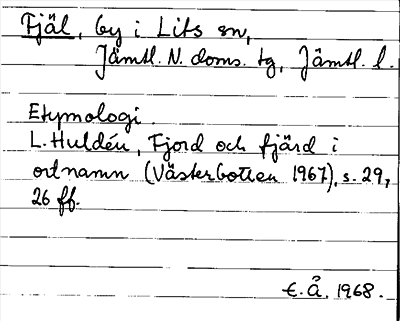 Fjäl, by i Lits sn,
Jämtl. N. doms. tg, Jämtl. l.
Etymologi.
L. Huldén, Fjord och fjärd i
ortnamn (Västerbotten 1967), s. 29,
26 ff.
E.Å. 1968.